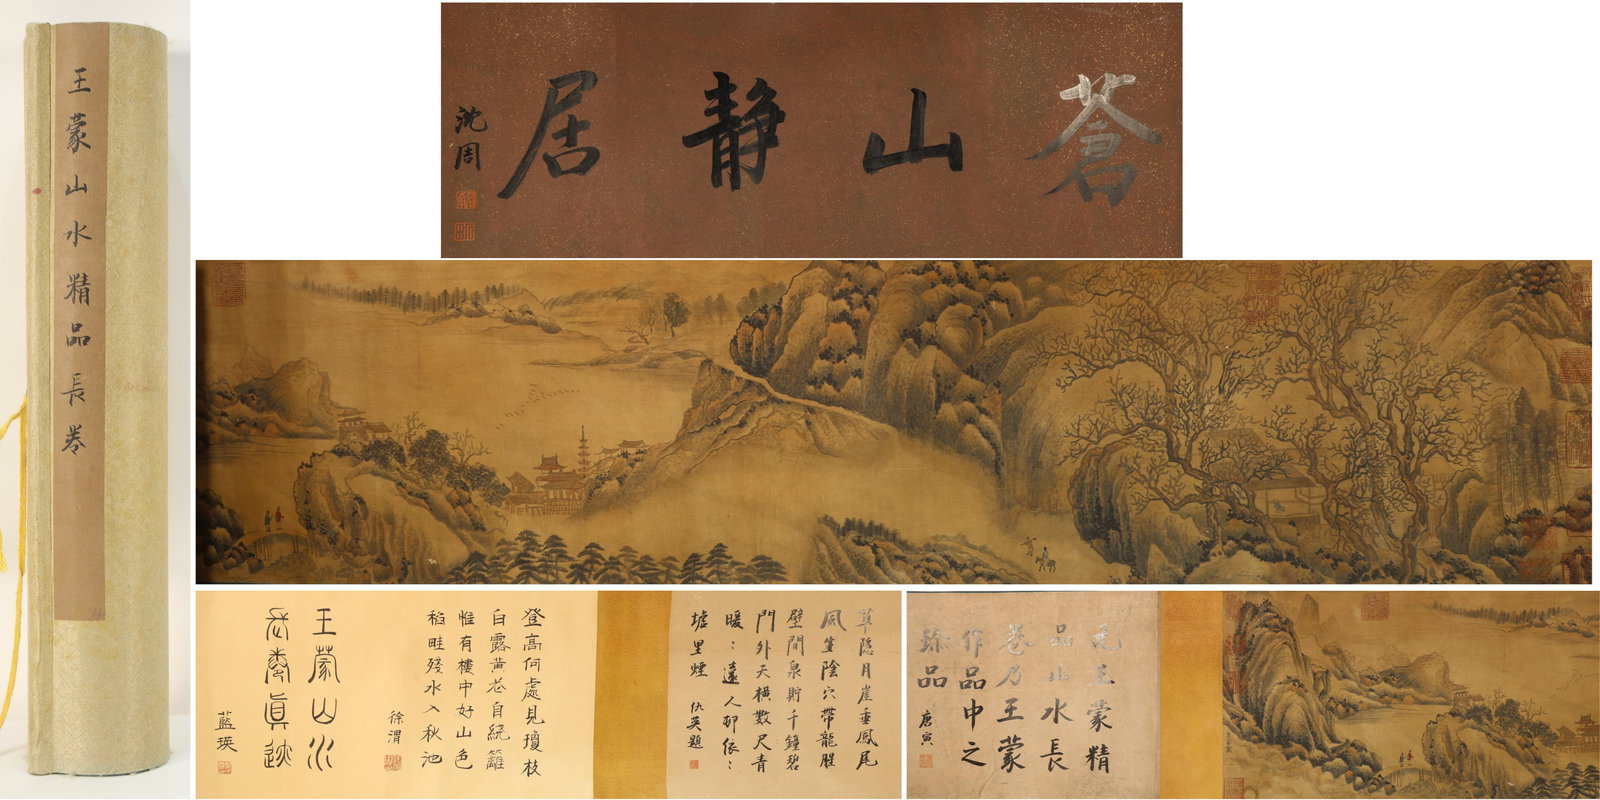 王蒙山水精品長卷
蒼山静居
沈周
草隠月崖垂鳳尾
風生陰穴帶龍腥
壁間泉貯千鐘碧
門外天橫數尺青
暖暖遠人邨依依
墟里煙 仇英題
登高何處見瓊枝
白露黄花自繞籬
惟有樓中好山色
稻畦殘水入秋池
徐渭
王蒙山水
長卷真迹
藍瑛
元王蒙精
品山水長
卷乃王蒙
作品中之
珍品
唐寅